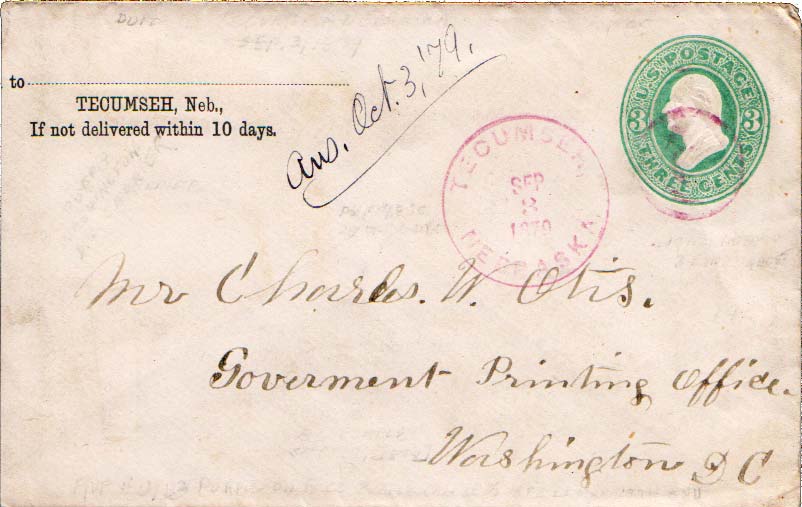 to
TECUMSEH, Neb.,
If not delivered within 10 days.
Ans. Oct. 3, '79.
TECUMSEH,
SEP
3
1879
NEBRASKA
U.S. POSTAGE
3 3
THREE CENTS
Mr Charles. W. Otis.
Goverment Printing Office.
Washington D C